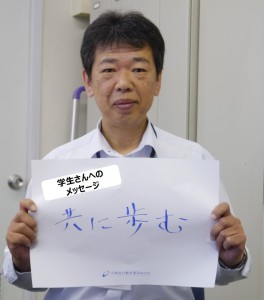 学生さんへの
メッセージ
共に歩む